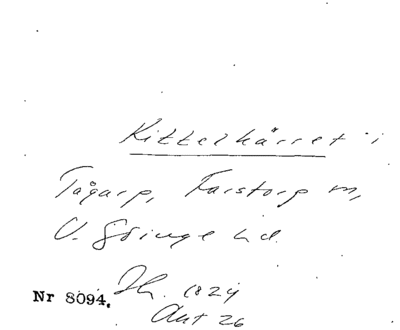 Kittelkärret i
Tågarp, Farstorp sn,
V. Göinge hd.
Nr 8094. Jh. 1824
Akt 26